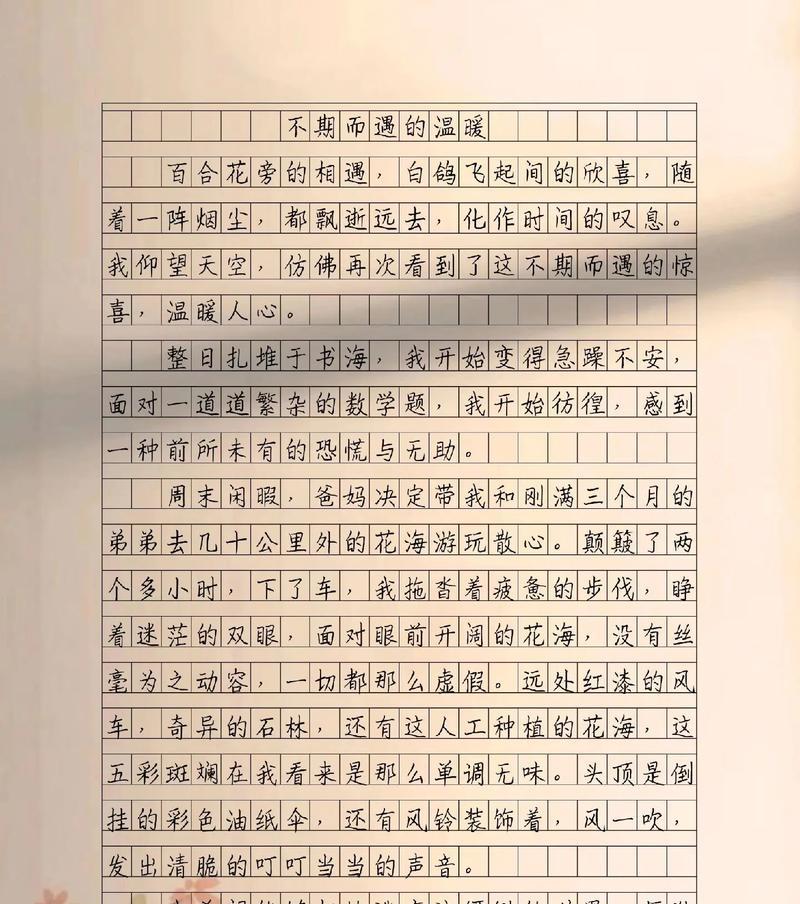 不期而遇的温暖
百合花旁的相遇，白鸽飞起间的欣喜，随
着一阵烟尘，都飘逝远去，化作时间的叹息。
我仰望天空，仿佛再次看到了这不期而遇的惊
喜，温暖人心。
整日扎堆于书海，我开始变得急躁不安，
面对一道道繁杂的数学题，我开始彷徨，感到
一种前所未有的恐慌与无助。
周末闲暇，爸妈决定带我和刚满三个月的
弟弟去几十公里外的花海游玩散心。颠簸了两
个多小时，下了车，我拖沓着疲惫的步伐，睁
着迷茫的双眼，面对眼前开阔的花海，没有丝
毫为之动容，一切都那么虚假。远处红漆的风
车，奇异的石林，还有这人工种植的花海，这
五彩斑斓在我看来是那么单调无味。头顶是倒
挂的彩色油纸伞，还有风铃装饰着，风一吹，
发出清脆的叮叮当当的声音。